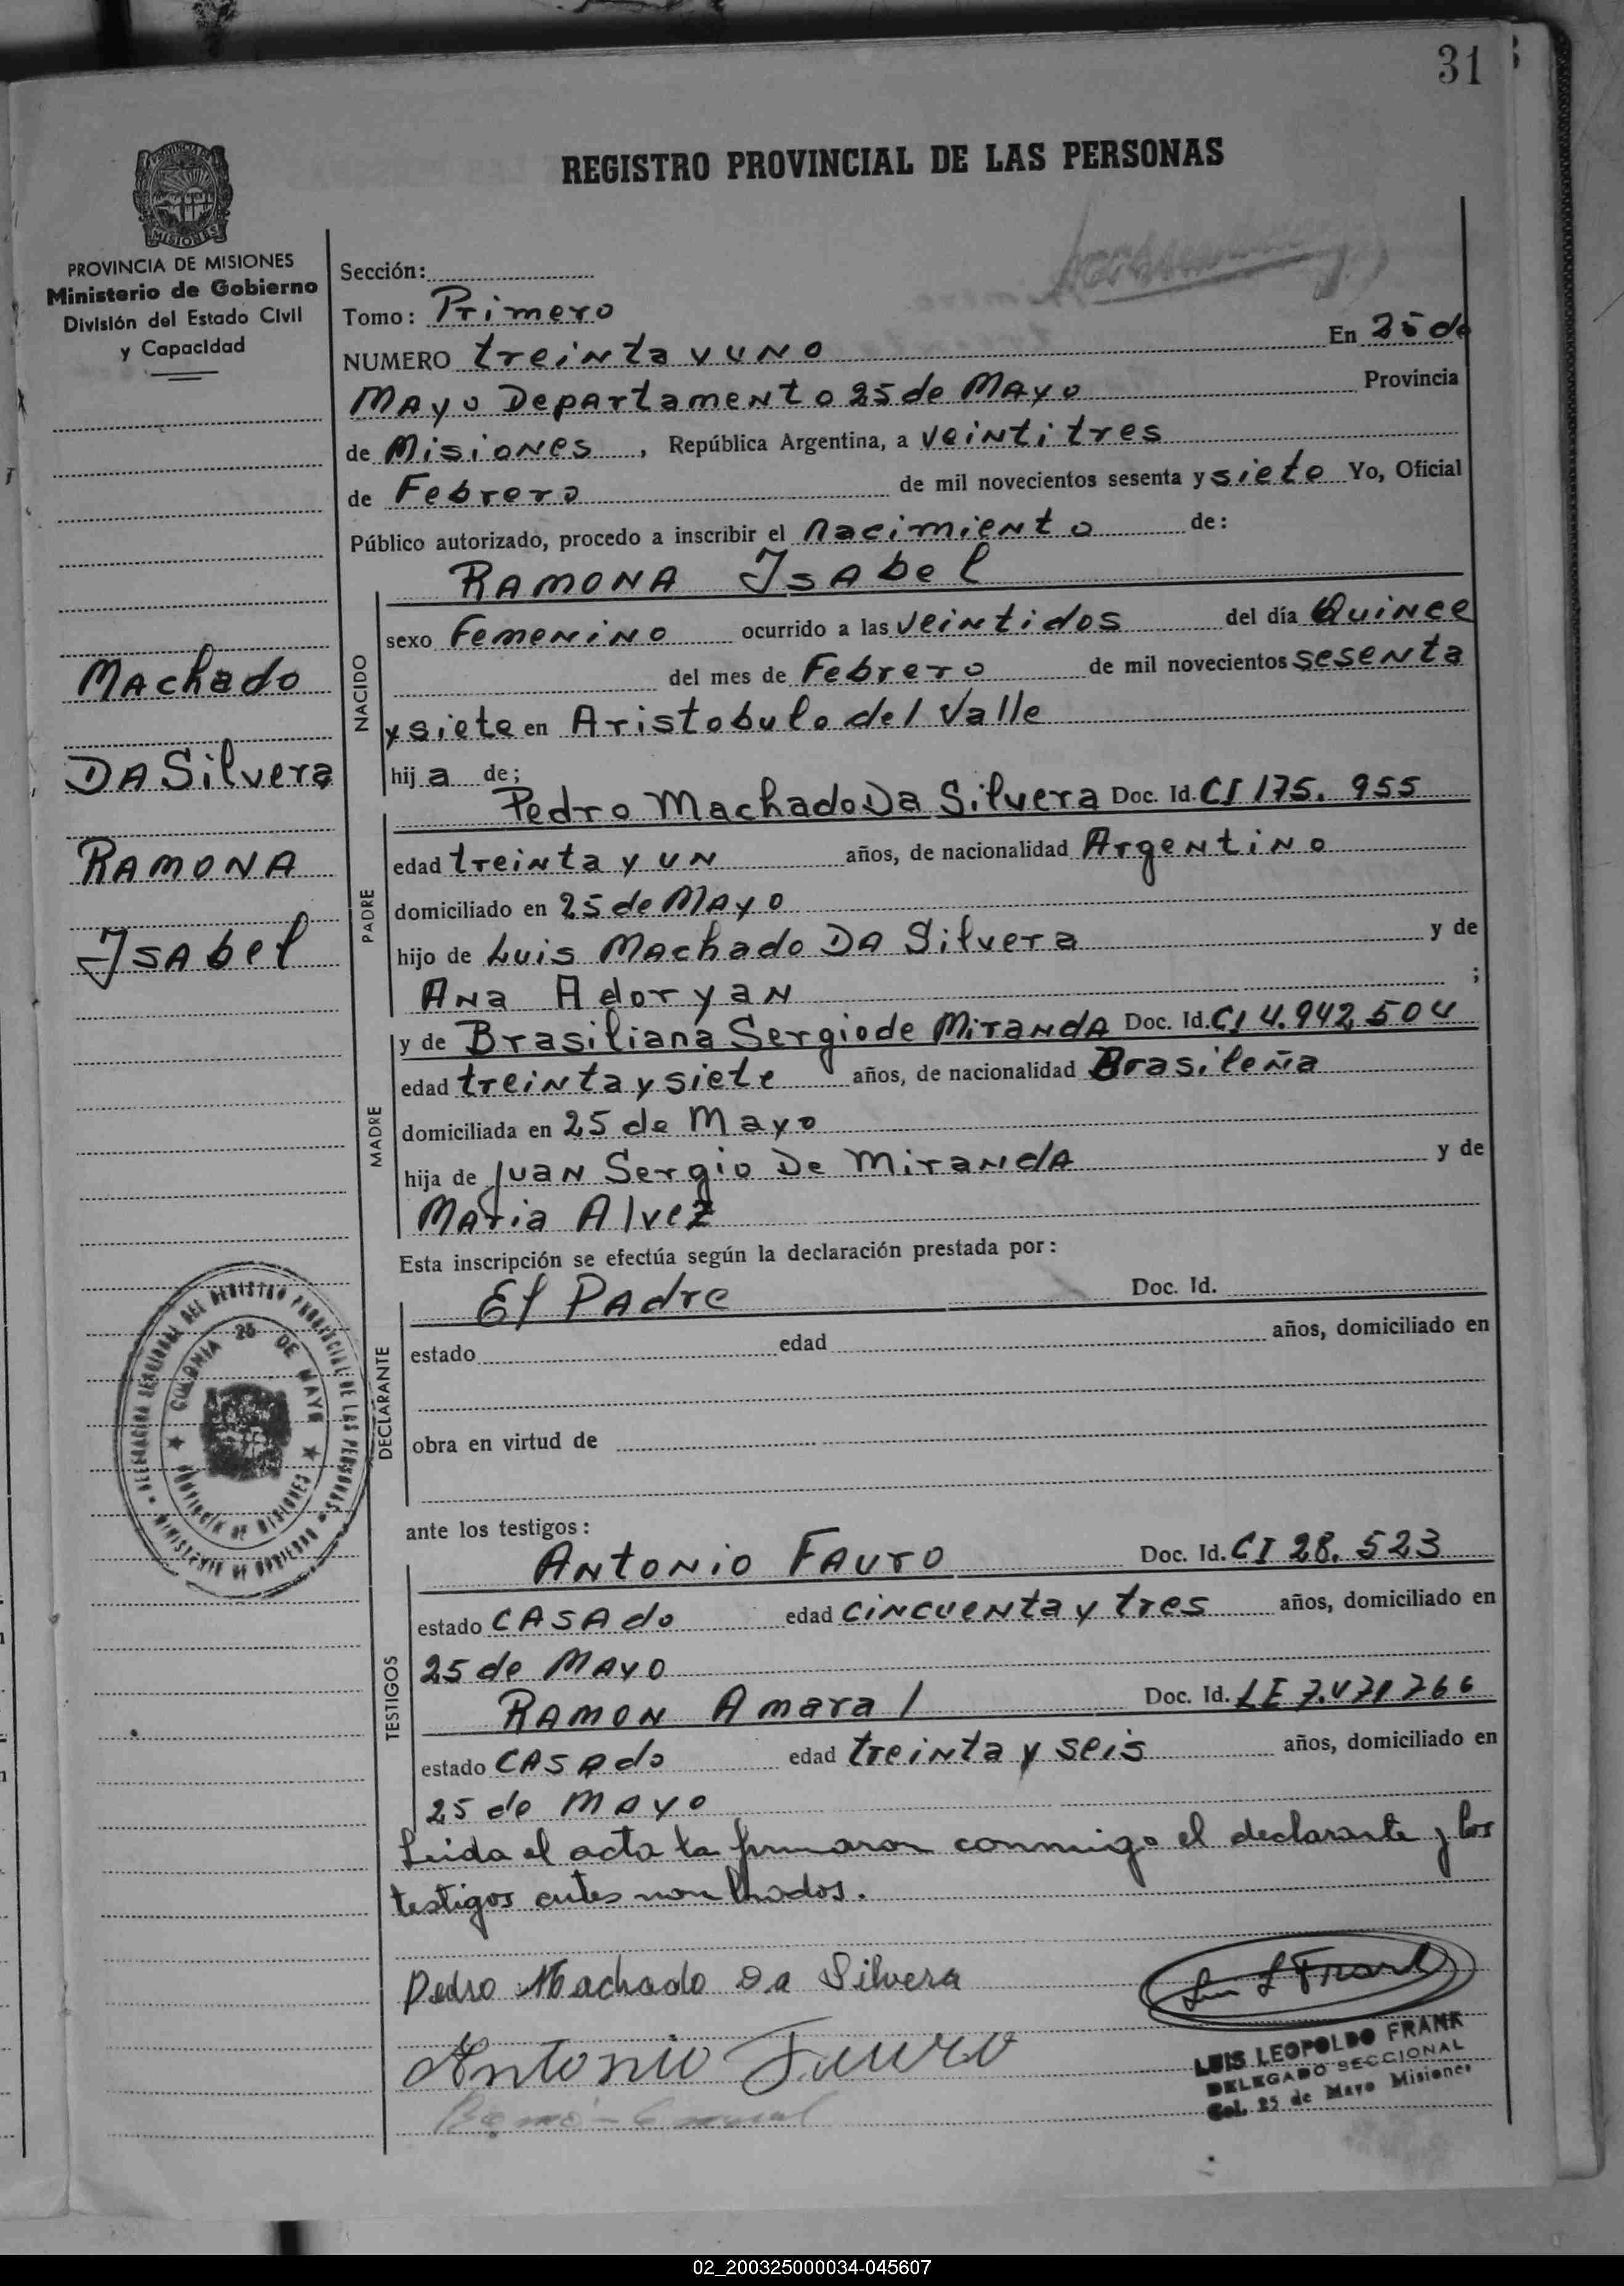 31
REGISTRO PROVINCIAL DE LAS PERSONAS
MISIONES
PROVINCIA DE MISIONES
Ministerio de Gobierno
División del Estado Civil
y Capacidad
Sección:
Tomo: Primero
NUMERO treinta y uno En 25 de
Mayo Departamento 25 de Mayo Provincia
de Misiones, República Argentina, a veintitres
de Febrero de mil novecientos sesenta y siete Yo, Oficial
Público autorizado, procedo a inscribir el nacimiento de:
RAMONA Isabel
NACIDO
sexo Femenino ocurrido a las veintidos del día Quince
del mes de Febrero de mil novecientos sesenta
y siete en Aristobulo del Valle
hija de;
Machado
DA Silvera
RAMONA
Isabel
PADRE
Pedro Machado Da Silvera Doc. Id. CI 175.955
edad treinta y un años, de nacionalidad Argentino
domiciliado en 25 de Mayo
hijo de Luis Machado DA Silvera y de
Ana Adoryan ;
MADRE
y de Brasiliana Sergio de Miranda Doc. Id. CI 4.942.504
edad treinta y siete años, de nacionalidad Brasileña
domiciliada en 25 de Mayo
hija de Juan Sergio De Miranda y de
Maria Alvez
Esta inscripción se efectúa según la declaración prestada por:
DECLARANTE
El Padre Doc. Id.
estado edad años, domiciliado en
obra en virtud de
DELEGACION SECCIONAL DEL REGISTRO PROVINCIAL DE LAS PERSONAS
MINISTERIO DE GOBIERNO
COLONIA 25 DE MAYO
PROVINCIA DE MISIONES
ante los testigos:
TESTIGOS
Antonio Fauro Doc. Id. CI 28.523
estado CASAdo edad cincuenta y tres años, domiciliado en
25 de Mayo
Ramon Amaral Doc. Id. LE 7.471.766
estado CASAdo edad treinta y seis años, domiciliado en
25 de Mayo
Leida el acta la firmaron conmigo el declarante y los
testigos antes nombrados.
Pedro Machado Da Silvera
Luis L Frank
Antonio Fauro
LUIS LEOPOLDO FRANK
DELEGADO SECCIONAL
Col. 25 de Mayo Misiones
02_200325000034-045607